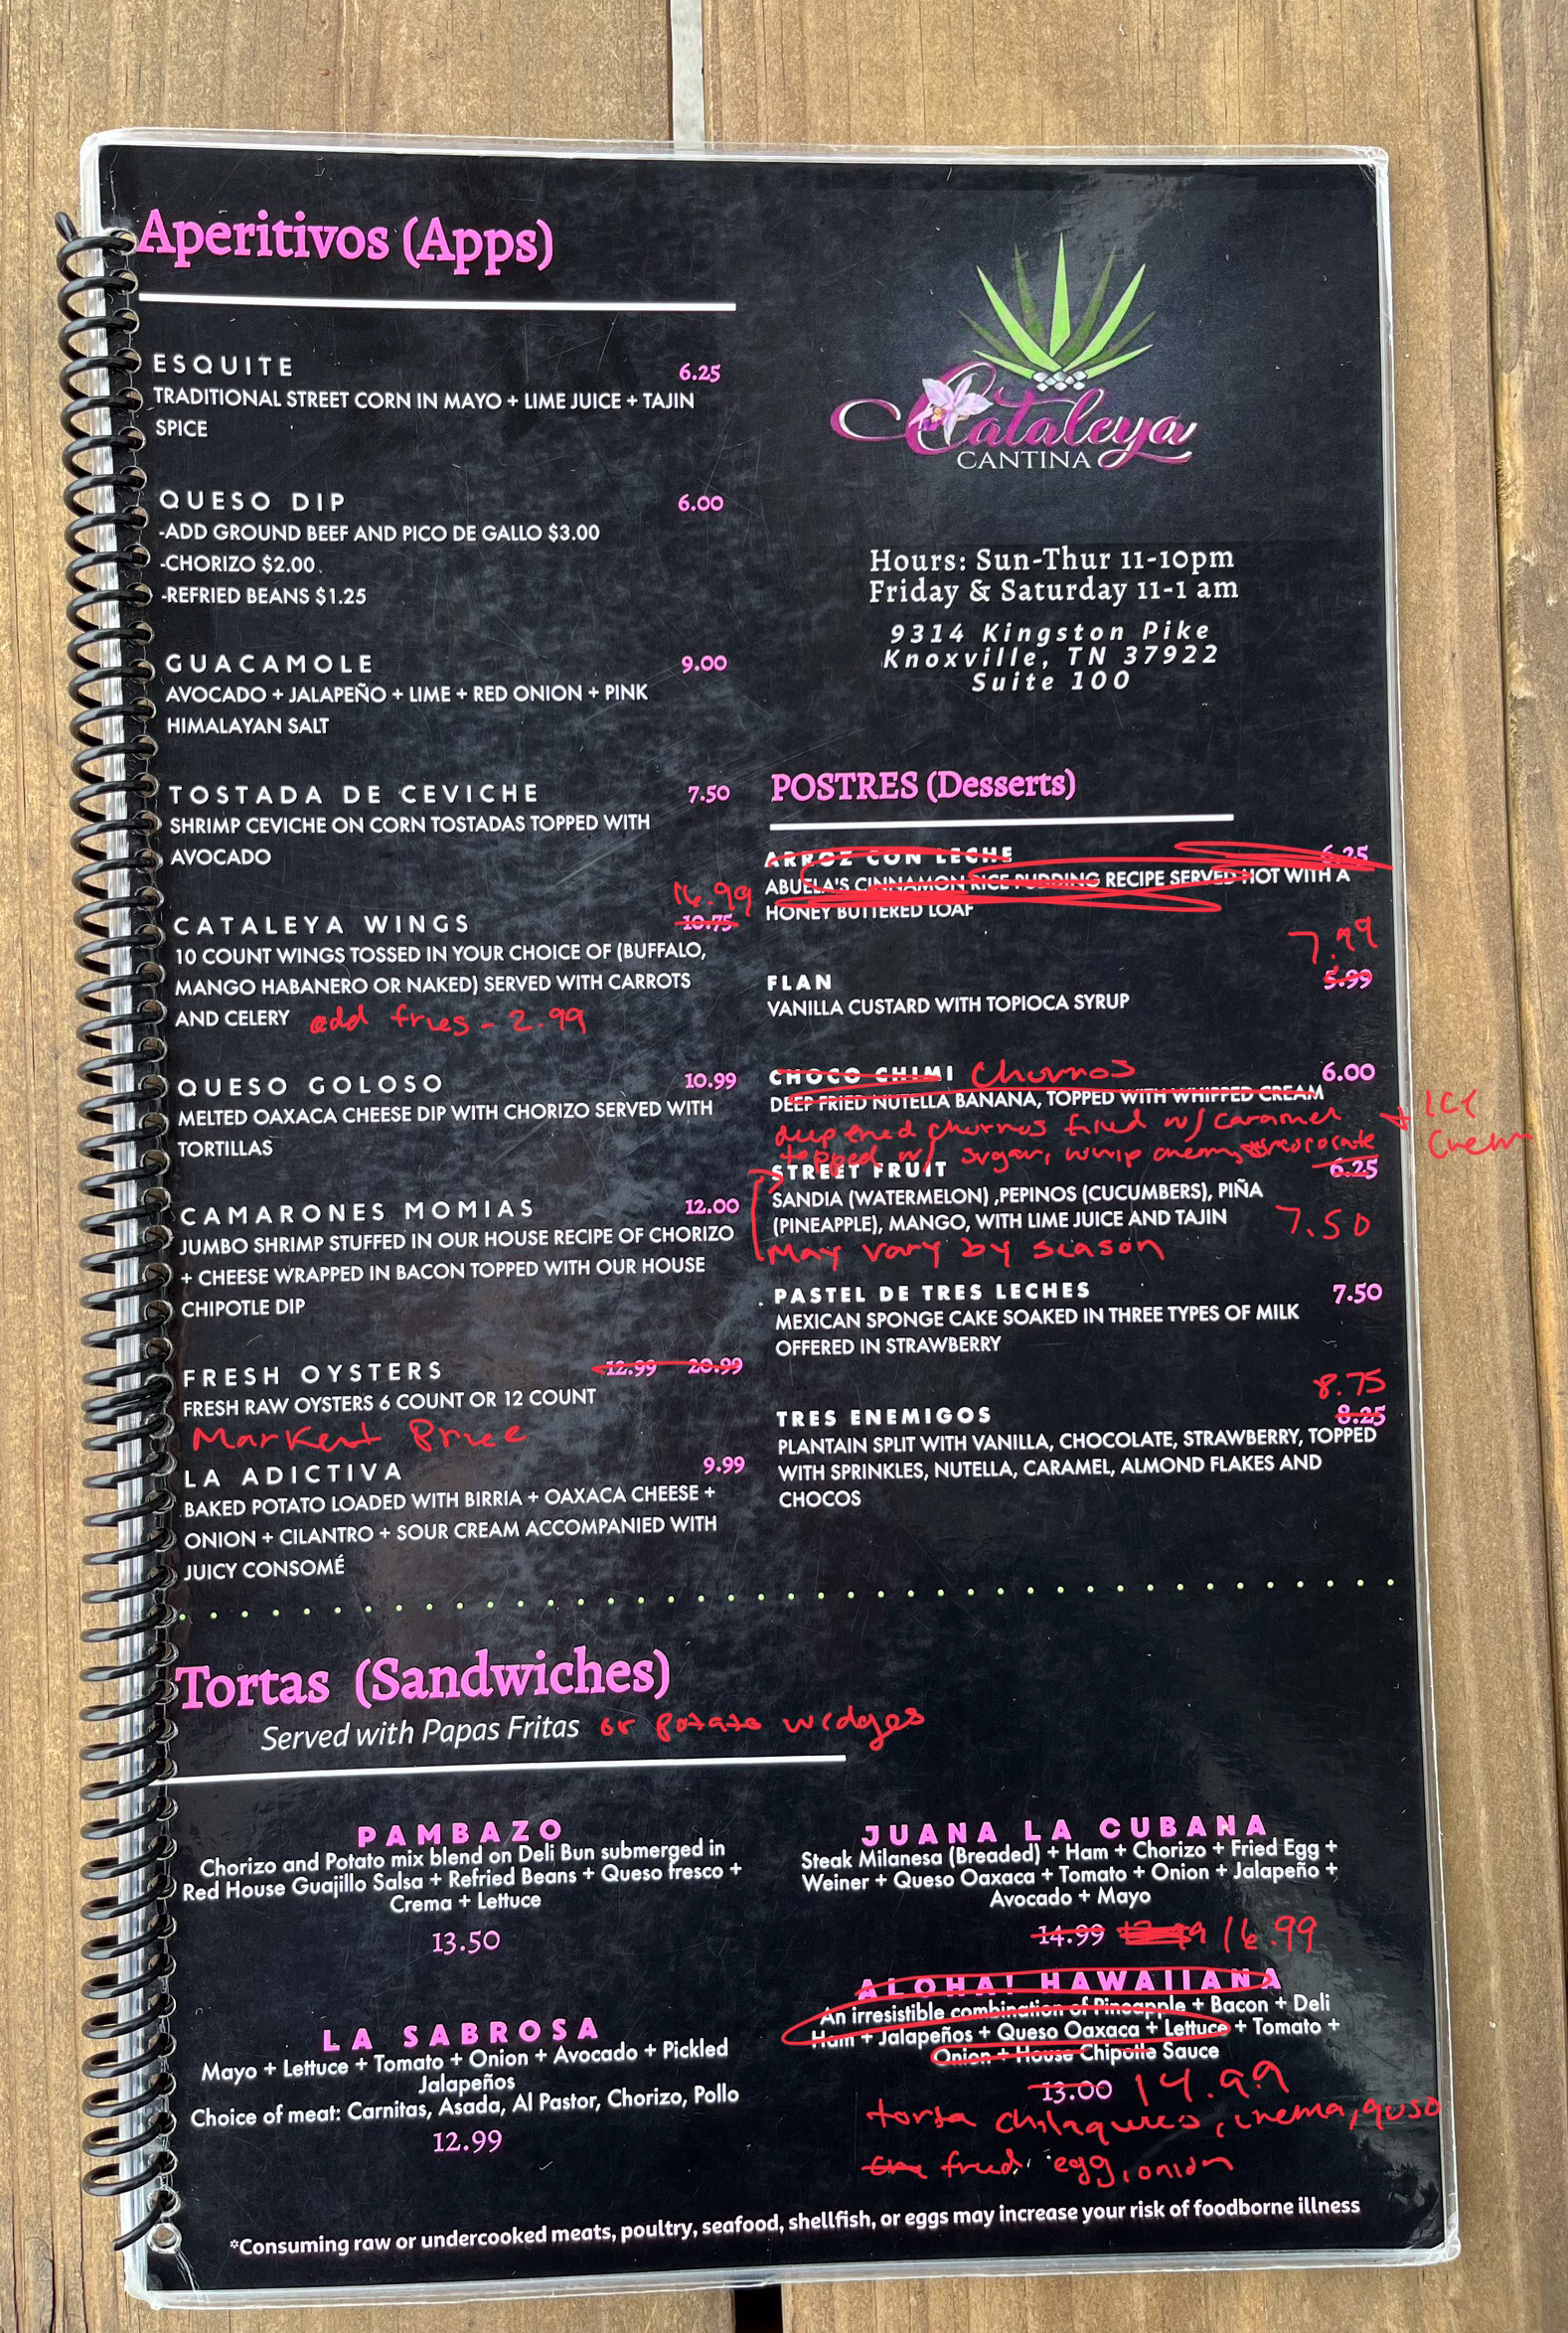 Aperitivos (Apps)
ESQUITE 6.25
TRADITIONAL STREET CORN IN MAYO + LIME JUICE + TAJIN
SPICE
QUESO DIP 6.00
-ADD GROUND BEEF AND PICO DE GALLO $3.00
-CHORIZO $2.00
-REFRIED BEANS $1.25
GUACAMOLE 9.00
AVOCADO + JALAPEÑO + LIME + RED ONION + PINK
HIMALAYAN SALT
TOSTADA DE CEVICHE 7.50
SHRIMP CEVICHE ON CORN TOSTADAS TOPPED WITH
AVOCADO
16.99
CATALEYA WINGS 10.75
10 COUNT WINGS TOSSED IN YOUR CHOICE OF (BUFFALO,
MANGO HABANERO OR NAKED) SERVED WITH CARROTS
AND CELERY add fries - 2.99
QUESO GOLOSO 10.99
MELTED OAXACA CHEESE DIP WITH CHORIZO SERVED WITH
TORTILLAS
CAMARONES MOMIAS 12.00
JUMBO SHRIMP STUFFED IN OUR HOUSE RECIPE OF CHORIZO
+ CHEESE WRAPPED IN BACON TOPPED WITH OUR HOUSE
CHIPOTLE DIP
FRESH OYSTERS 12.99 20.99
FRESH RAW OYSTERS 6 COUNT OR 12 COUNT
Market Price
LA ADICTIVA 9.99
BAKED POTATO LOADED WITH BIRRIA + OAXACA CHEESE +
ONION + CILANTRO + SOUR CREAM ACCOMPANIED WITH
JUICY CONSOMÉ
Cataleya
CANTINA
Hours: Sun-Thur 11-10pm
Friday & Saturday 11-1 am
9314 Kingston Pike
Knoxville, TN 37922
Suite 100
POSTRES (Desserts)
ARROZ CON LECHE 6.25
ABUELA'S CINNAMON RICE PUDDING RECIPE SERVED HOT WITH A
HONEY BUTTERED LOAF
7.99
FLAN 5.99
VANILLA CUSTARD WITH TOPIOCA SYRUP
CHOCO CHIMI Churros 6.00
DEEP FRIED NUTELLA BANANA, TOPPED WITH WHIPPED CREAM
churros filled w/ caramel + ICE
topped w/ sugar, whip cream, Cream
STREET FRUIT 6.25
SANDIA (WATERMELON) ,PEPINOS (CUCUMBERS), PIÑA
(PINEAPPLE), MANGO, WITH LIME JUICE AND TAJIN 7.50
May vary by season
PASTEL DE TRES LECHES 7.50
MEXICAN SPONGE CAKE SOAKED IN THREE TYPES OF MILK
OFFERED IN STRAWBERRY
8.75
TRES ENEMIGOS 8.25
PLANTAIN SPLIT WITH VANILLA, CHOCOLATE, STRAWBERRY, TOPPED
WITH SPRINKLES, NUTELLA, CARAMEL, ALMOND FLAKES AND
CHOCOS
Tortas (Sandwiches)
Served with Papas Fritas or Potato wedges
PAMBAZO
Chorizo and Potato mix blend on Deli Bun submerged in
Red House Guajillo Salsa + Refried Beans + Queso fresco +
Crema + Lettuce
13.50
LA SABROSA
Mayo + Lettuce + Tomato + Onion + Avocado + Pickled
Jalapeños
Choice of meat: Carnitas, Asada, Al Pastor, Chorizo, Pollo
12.99
JUANA LA CUBANA
Steak Milanesa (Breaded) + Ham + Chorizo + Fried Egg +
Weiner + Queso Oaxaca + Tomato + Onion + Jalapeño +
Avocado + Mayo
14.99 16.99
ALOHA! HAWAIIANA
An irresistible combination of Pineapple + Bacon + Deli
Ham + Jalapeños + Queso Oaxaca + Lettuce + Tomato +
Onion + House Chipotle Sauce
13.00 14.99
torta chilaquiles, crema, queso
fried egg, onion
*Consuming raw or undercooked meats, poultry, seafood, shellfish, or eggs may increase your risk of foodborne illness